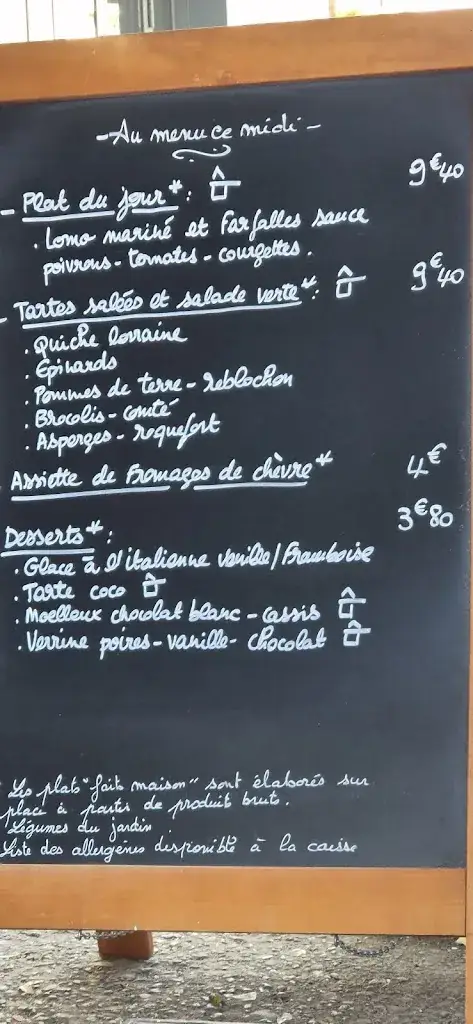 - Au menu ce midi -
- Plat du jour* : 9€40
. Lomo mariné et Farfalles sauce
poivrons - tomates - courgettes.
- Tartes salées et salade verte* : 9€40
. Quiche lorraine
. Epinards
. Pommes de terre - reblochon
. Brocolis - comté
. Asperges - roquefort
Assiette de Fromages de chèvre* 4€
Desserts* : 3€80
. Glace à l'italienne vanille/Framboise
. Tarte coco
. Moelleux chocolat blanc - cassis
. Verrine poires - vanille - chocolat
* Les plats "faits maison" sont élaborés sur
place à partir de produit bruts.
Légumes du jardin
Liste des allergènes disponible à la caisse